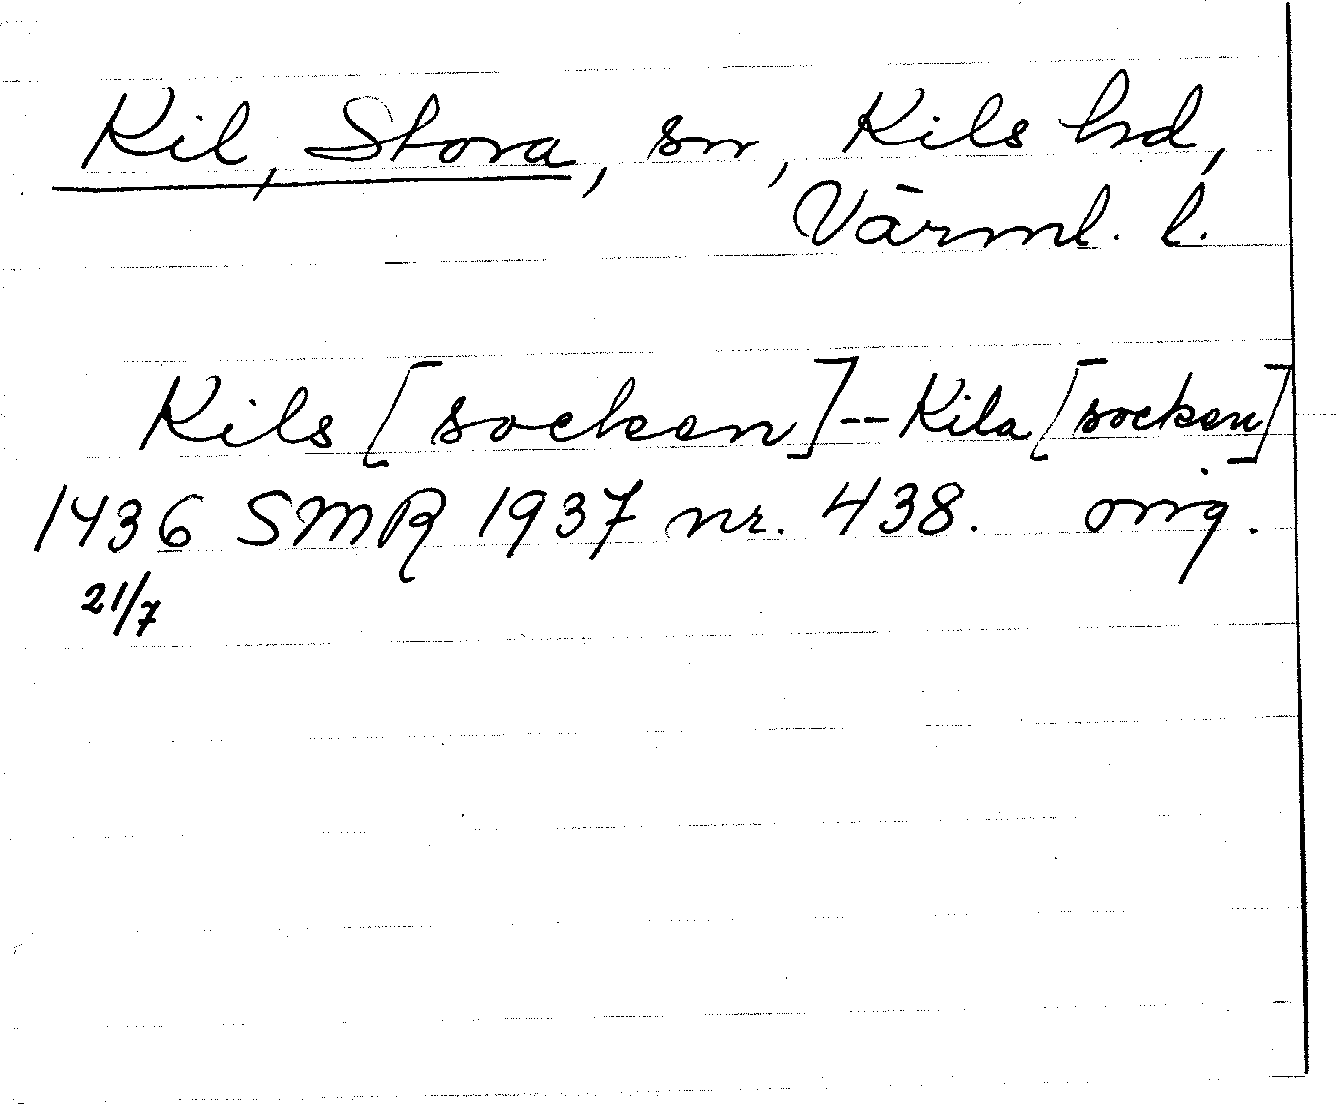 Kil, Stora, sn, Kils hd,
Värml. l.
Kils [socken] -- Kila [socken]
1436 SMR 1937 nr. 438. orig.
21/7